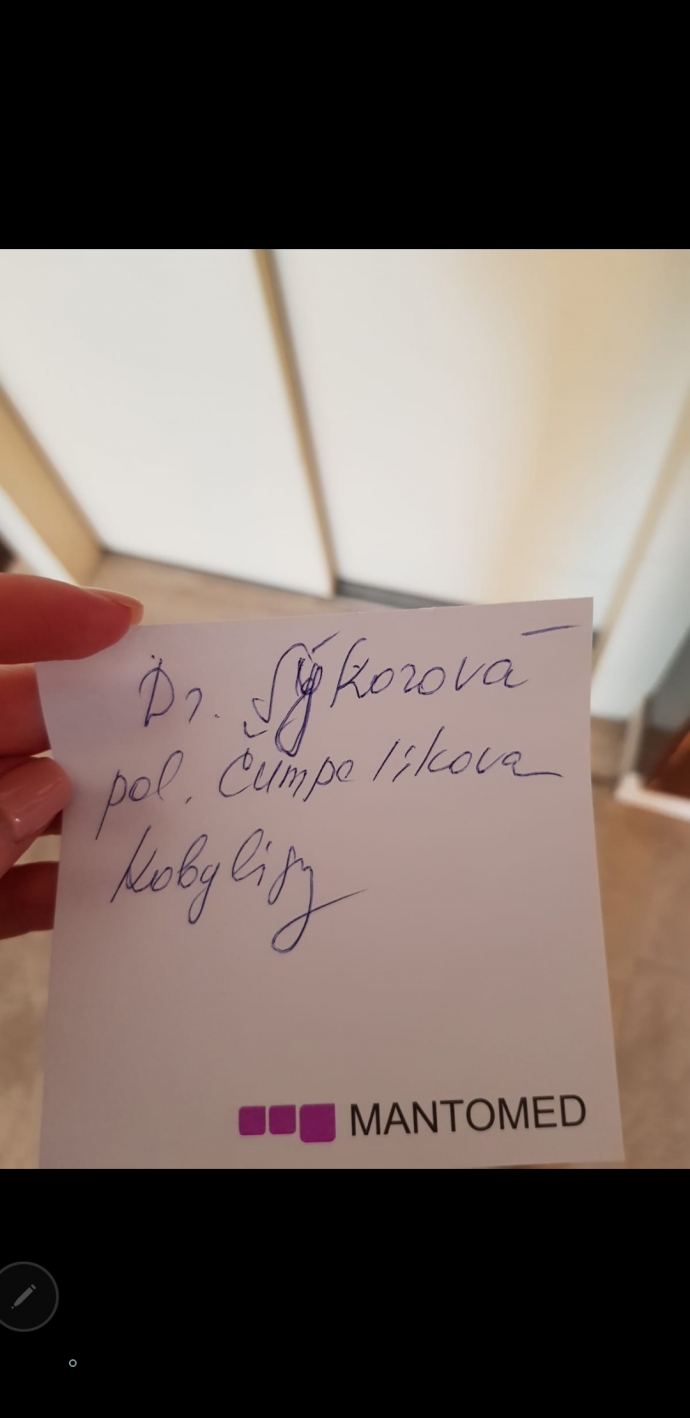 Dr. Sýkorová
pol. Čumpelikova
Kobylisy
MANTOMED